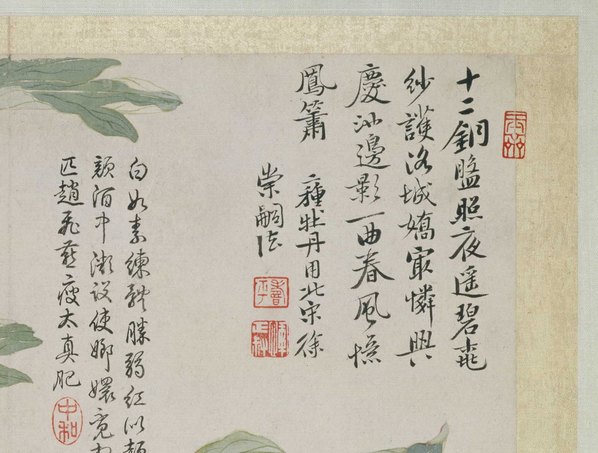 十二銅盤照夜遙碧桃
紗護洛城嬌最憐興
慶池邊影一曲春風憶
鳳簫 種牡丹用北宋徐
崇嗣法
壽平
白如素練 勝 紅似
顏酒中漸設使嫏嬛竟
匹趙飛燕瘦太真肥
中和